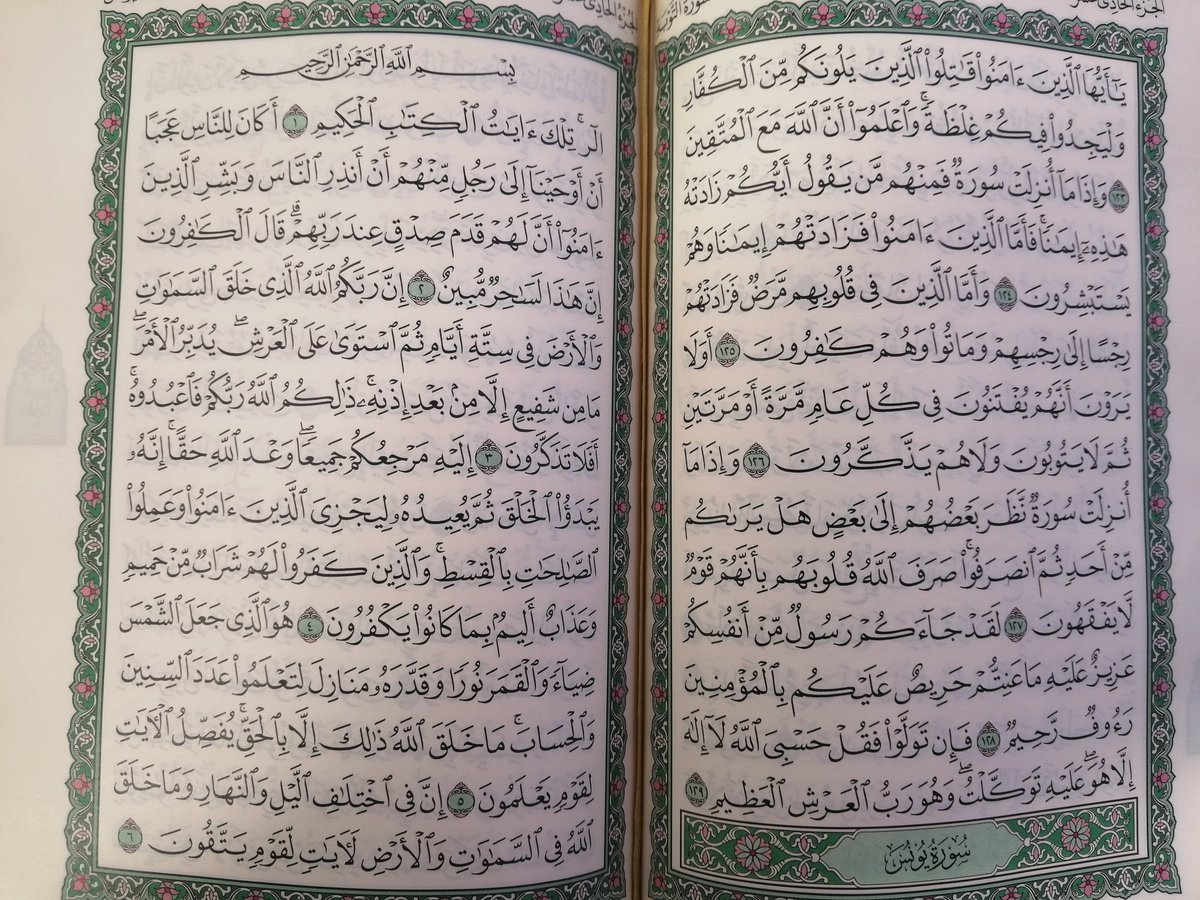 الجزء الحادي عشر
سورة التوبة
يَٰٓأَيُّهَا ٱلَّذِينَ ءَامَنُوا۟ قَٰتِلُوا۟ ٱلَّذِينَ يَلُونَكُم مِّنَ ٱلْكُفَّارِ
وَلْيَجِدُوا۟ فِيكُمْ غِلْظَةً ۚ وَٱعْلَمُوٓا۟ أَنَّ ٱللَّهَ مَعَ ٱلْمُتَّقِينَ
١٢٣ وَإِذَا مَآ أُنزِلَتْ سُورَةٌ فَمِنْهُم مَّن يَقُولُ أَيُّكُمْ زَادَتْهُ
هَٰذِهِۦٓ إِيمَٰنًا ۚ فَأَمَّا ٱلَّذِينَ ءَامَنُوا۟ فَزَادَتْهُمْ إِيمَٰنًا وَهُمْ
يَسْتَبْشِرُونَ ١٢٤ وَأَمَّا ٱلَّذِينَ فِى قُلُوبِهِم مَّرَضٌ فَزَادَتْهُمْ
رِجْسًا إِلَىٰ رِجْسِهِمْ وَمَاتُوا۟ وَهُمْ كَٰفِرُونَ ١٢٥ أَوَلَا
يَرَوْنَ أَنَّهُمْ يُفْتَنُونَ فِى كُلِّ عَامٍ مَّرَّةً أَوْ مَرَّتَيْنِ
ثُمَّ لَا يَتُوبُونَ وَلَا هُمْ يَذَّكَّرُونَ ١٢٦ وَإِذَا مَآ
أُنزِلَتْ سُورَةٌ نَّظَرَ بَعْضُهُمْ إِلَىٰ بَعْضٍ هَلْ يَرَىٰكُم
مِّنْ أَحَدٍ ثُمَّ ٱنصَرَفُوا۟ ۚ صَرَفَ ٱللَّهُ قُلُوبَهُم بِأَنَّهُمْ قَوْمٌ
لَّا يَفْقَهُونَ ١٢٧ لَقَدْ جَآءَكُمْ رَسُولٌ مِّنْ أَنفُسِكُمْ
عَزِيزٌ عَلَيْهِ مَا عَنِتُّمْ حَرِيصٌ عَلَيْكُم بِٱلْمُؤْمِنِينَ
رَءُوفٌ رَّحِيمٌ ١٢٨ فَإِن تَوَلَّوْا۟ فَقُلْ حَسْبِىَ ٱللَّهُ لَآ إِلَٰهَ
إِلَّا هُوَ ۖ عَلَيْهِ تَوَكَّلْتُ ۖ وَهُوَ رَبُّ ٱلْعَرْشِ ٱلْعَظِيمِ ١٢٩
سُورَةُ يُونُسَ
بِسْمِ ٱللَّهِ ٱلرَّحْمَٰنِ ٱلرَّحِيمِ
الٓر ۚ تِلْكَ ءَايَٰتُ ٱلْكِتَٰبِ ٱلْحَكِيمِ ١ أَكَانَ لِلنَّاسِ عَجَبًا
أَنْ أَوْحَيْنَآ إِلَىٰ رَجُلٍ مِّنْهُمْ أَنْ أَنذِرِ ٱلنَّاسَ وَبَشِّرِ ٱلَّذِينَ
ءَامَنُوٓا۟ أَنَّ لَهُمْ قَدَمَ صِدْقٍ عِندَ رَبِّهِمْ ۗ قَالَ ٱلْكَٰفِرُونَ
إِنَّ هَٰذَا لَسَٰحِرٌ مُّبِينٌ ٢ إِنَّ رَبَّكُمُ ٱللَّهُ ٱلَّذِى خَلَقَ ٱلسَّمَٰوَٰتِ
وَٱلْأَرْضَ فِى سِتَّةِ أَيَّامٍ ثُمَّ ٱسْتَوَىٰ عَلَى ٱلْعَرْشِ ۖ يُدَبِّرُ ٱلْأَمْرَ ۖ
مَا مِن شَفِيعٍ إِلَّا مِنۢ بَعْدِ إِذْنِهِۦ ۚ ذَٰلِكُمُ ٱللَّهُ رَبُّكُمْ فَٱعْبُدُوهُ ۚ
أَفَلَا تَذَكَّرُونَ ٣ إِلَيْهِ مَرْجِعُكُمْ جَمِيعًا ۖ وَعْدَ ٱللَّهِ حَقًّا ۚ إِنَّهُۥ
يَبْدَؤُا۟ ٱلْخَلْقَ ثُمَّ يُعِيدُهُۥ لِيَجْزِىَ ٱلَّذِينَ ءَامَنُوا۟ وَعَمِلُوا۟
ٱلصَّٰلِحَٰتِ بِٱلْقِسْطِ ۚ وَٱلَّذِينَ كَفَرُوا۟ لَهُمْ شَرَابٌ مِّنْ حَمِيمٍ
وَعَذَابٌ أَلِيمٌۢ بِمَا كَانُوا۟ يَكْفُرُونَ ٤ هُوَ ٱلَّذِى جَعَلَ ٱلشَّمْسَ
ضِيَآءً وَٱلْقَمَرَ نُورًا وَقَدَّرَهُۥ مَنَازِلَ لِتَعْلَمُوا۟ عَدَدَ ٱلسِّنِينَ
وَٱلْحِسَابَ ۚ مَا خَلَقَ ٱللَّهُ ذَٰلِكَ إِلَّا بِٱلْحَقِّ ۚ يُفَصِّلُ ٱلْءَايَٰتِ
لِقَوْمٍ يَعْلَمُونَ ٥ إِنَّ فِى ٱخْتِلَٰفِ ٱلَّيْلِ وَٱلنَّهَارِ وَمَا خَلَقَ
ٱللَّهُ فِى ٱلسَّمَٰوَٰتِ وَٱلْأَرْضِ لَءَايَٰتٍ لِّقَوْمٍ يَتَّقُونَ ٦